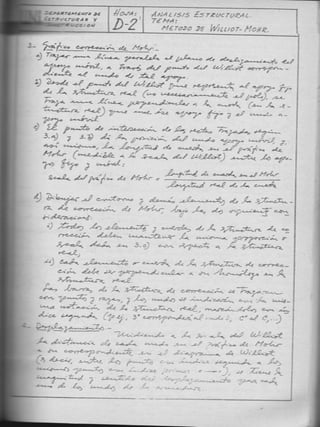 DEPARTAMENTO DE
ESTRUCTURAS Y
CONSTRUCCION
HOJA:
D-2
ANALISIS ESTRUCTURAL
TEMA:
METODO DE WILLIOT-MOHR.
3.- Gráfico corrección de Mohr.-
a) Trazar una línea paralela al plano de deslizamiento del
apoyo móvil, a través del punto del Williot correspon-
diente al nudo de tal apoyo.
b) Desde el punto del Williot que representa al apoyo fijo
de la estructura real (no necesariamente el polo)
Traza una línea perpendicular a la cuerda (en la es-
tructura real) que une dicho apoyo fijo y el nudo
apoyo móvil
c) El punto de intersección de las rectas trazadas según
3.a) y 3.b) da la posición del nudo apoyo móvil, y
así mismo, la longitud de cuerda en el gráfico de
Mohr (medible a la escala del Williot) entre los apo-
yos fijo y móvil:
Escala del gráfico de Mohr = longitud de cuerda en el Mohr
longitud real de la cuerda
d) Dibujar el contorno y demás elementos de la estructu-
ra de corrección de Mohr, bajo las dos siguientes con-
sideraciones:
i) todos los elementos y cuerdas de la estructura de co-
rrección deben mantener la misma proporción o
escala dada en 3.c) con respecto a la estructura
real,
ii) Cada elemento o cuerda de la estructura de correc-
ción debe ser perpendicular a su homólogo en la
estructura real
Las barras de la estructura de corrección se trazarán
con puntos y rayas, y los nudos se indicarán con la mis-
ma notación de la estructura real, marcándolos con ín-
dice segundo
Desplazamientos.-
Midiendo a la escala del Williot
la distancia de cada nudo en el gráfico de Mohr
a su correspondiente en el diagrama de Williot,
(es decir, entre los puntos con índice segundo a los
mismos puntos con índice primo), se tiene la
magnitud y sentido del desplazamiento para cada
uno de los nudos de la armadura.